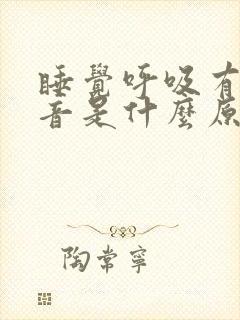 睡覺呼吸有
音是什麼原
陶常寧